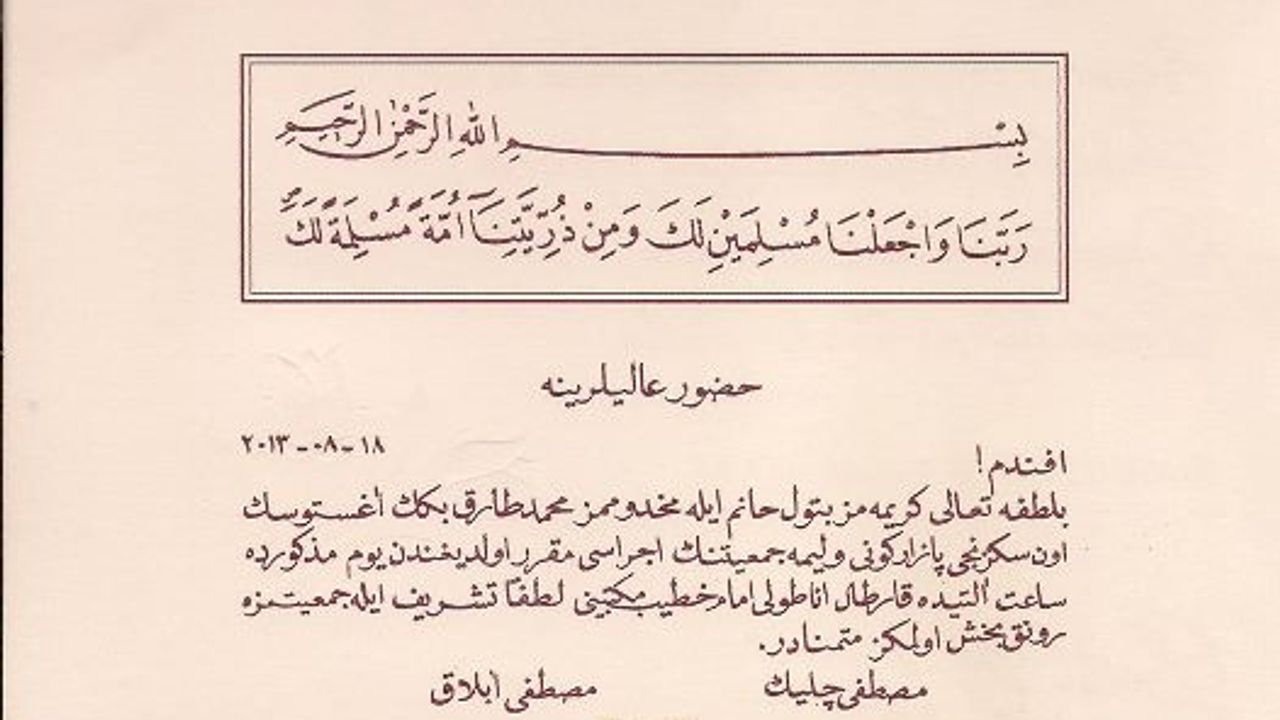 بِسْمِ اللهِ الرَّحْمٰنِ الرَّحِيمِ
رَبَّنَا وَاجْعَلْنَا مُسْلِمَيْنِ لَكَ وَمِنْ ذُرِّيَّتِنَآ اُمَّةً مُسْلِمَةً لَكَ
حضور عاليلرينه
١٨-٠٨-٢٠١٣
افندم!
بلطفه تعالى كريمه مز بتول حانم ايله مخدوممز محمد طارق بكك اغستوسك
اون سكزنجى پازار كونى وليمه جمعيتنك اجراسى مقرر اولديغندن يوم مذكورده
ساعت آلتيده قارطال اناطولى امام خطيب مكتبنى لطفاً تشريف ايله جمعيتمزه
رونق بخش اولمكز متمنادر.
مصطفى چليك
مصطفى ابلاق